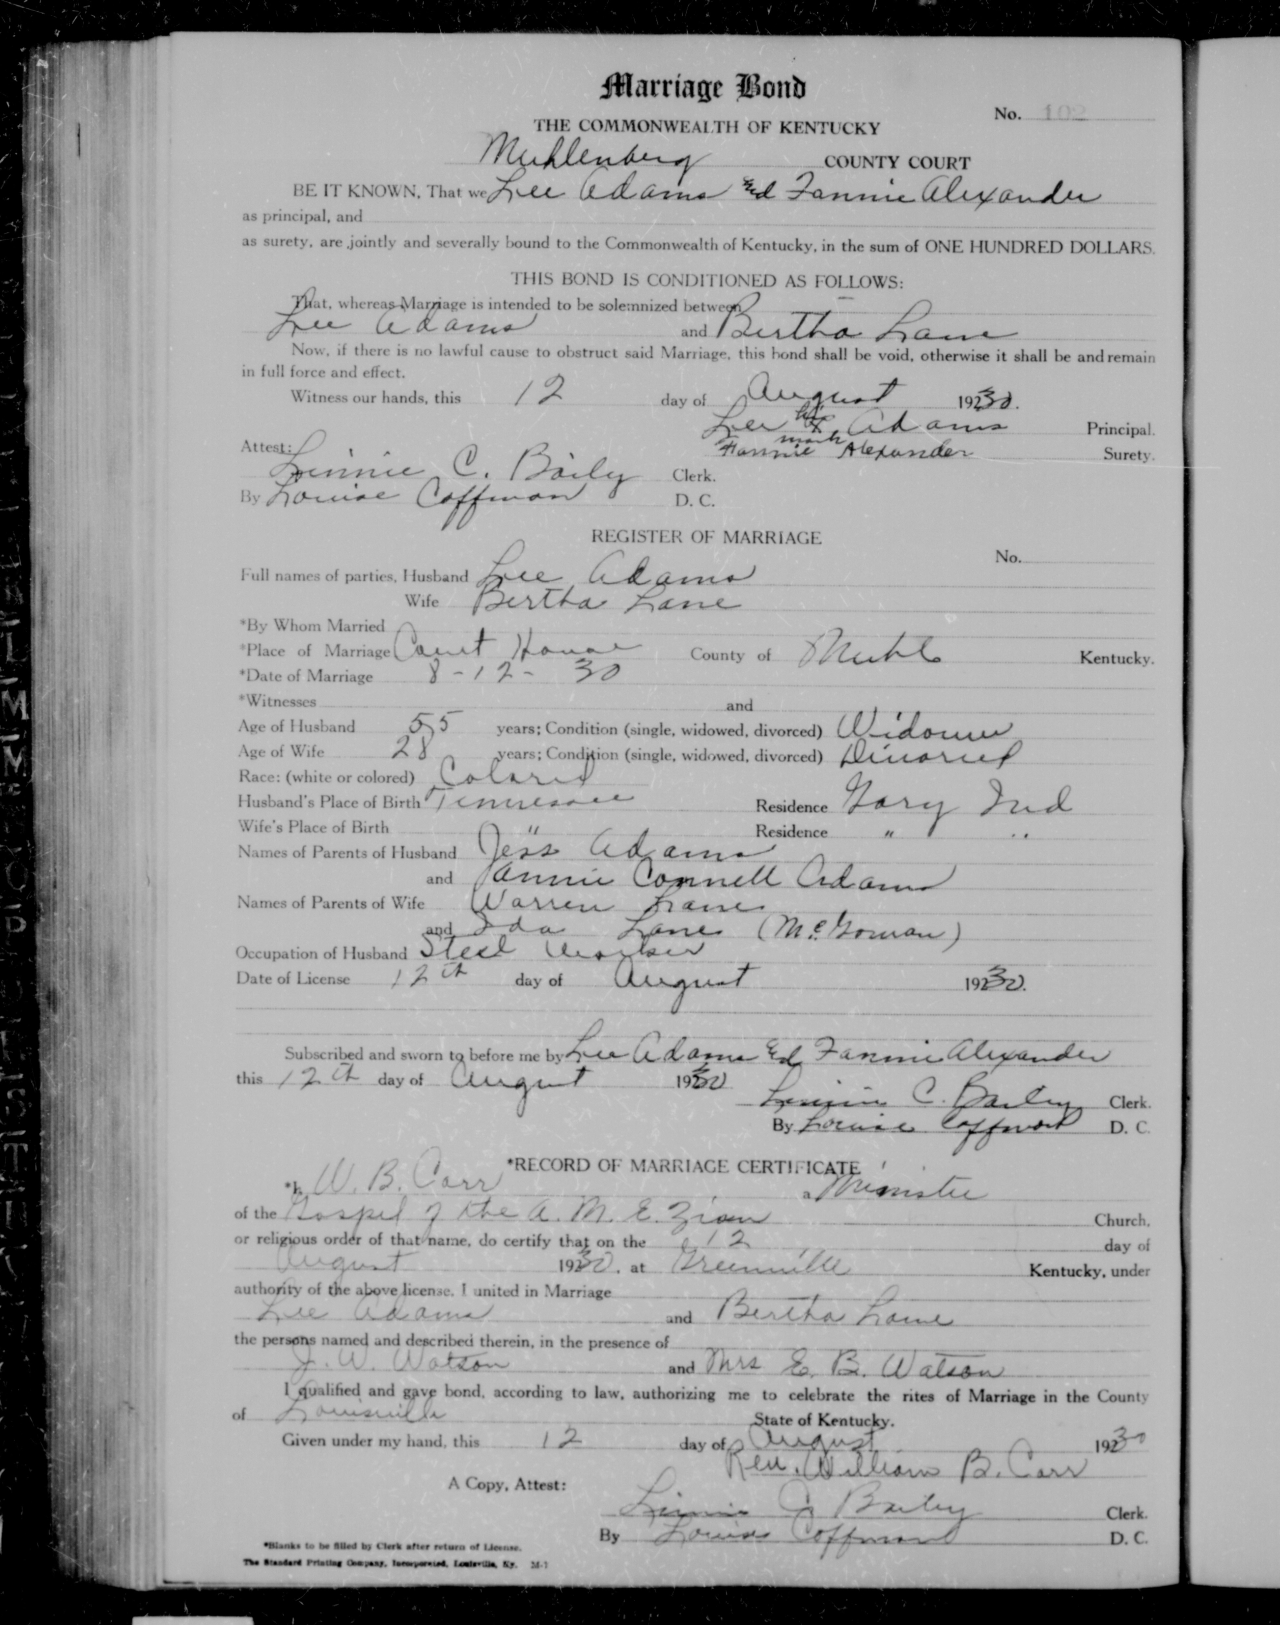 Marriage Bond
No. 102
THE COMMONWEALTH OF KENTUCKY
Muhlenberg COUNTY COURT
BE IT KNOWN, That we Lee Adams and Fannie Alexander
as principal, and
as surety, are jointly and severally bound to the Commonwealth of Kentucky, in the sum of ONE HUNDRED DOLLARS.
THIS BOND IS CONDITIONED AS FOLLOWS:
That, whereas Marriage is intended to be solemnized between
Lee Adams and Bertha Lane
Now, if there is no lawful cause to obstruct said Marriage, this bond shall be void, otherwise it shall be and remain
in full force and effect.
Witness our hands, this 12 day of August 1930.
Lee his X mark Adams Principal.
Attest: Fannie Alexander Surety.
Linnie C. Baily Clerk.
By Louise Coffman D. C.
REGISTER OF MARRIAGE
No.
Full names of parties, Husband Lee Adams
Wife Bertha Lane
*By Whom Married
*Place of Marriage Court House County of Muhl Kentucky.
*Date of Marriage 8-12-30
*Witnesses and
Age of Husband 55 years; Condition (single, widowed, divorced) Widower
Age of Wife 28 years; Condition (single, widowed, divorced) Divorced
Race: (white or colored) Colored
Husband's Place of Birth Tennessee Residence Gary Ind
Wife's Place of Birth " Residence " "
Names of Parents of Husband Jess Adams
and Fannie Connell Adams
Names of Parents of Wife Warren Lane
and Ida Lane (McGowan)
Occupation of Husband Steel Worker
Date of License 12th day of August 1930.
Subscribed and sworn to before me by Lee Adams and Fannie Alexander
this 12th day of August 1930
Linnie C. Bailey Clerk.
By Louise Coffman D. C.
*RECORD OF MARRIAGE CERTIFICATE
*I, W. B. Carr a Minister
of the Gospel of the A. M. E. Zion Church,
or religious order of that name, do certify that on the 12 day of
August 1930. at Greenville Kentucky, under
authority of the above license, I united in Marriage
Lee Adams and Bertha Lane
the persons named and described therein, in the presence of
J. W. Watson and Mrs E. B. Watson
I qualified and gave bond, according to law, authorizing me to celebrate the rites of Marriage in the County
of Louisville State of Kentucky.
Given under my hand, this 12 day of August 1930
Rev. William B. Carr
A Copy, Attest:
Linnie C Bailey Clerk.
By Louise Coffman D. C.
*Blanks to be filled by Clerk after return of License.
The Standard Printing Company, Incorporated, Louisville, Ky. M-1